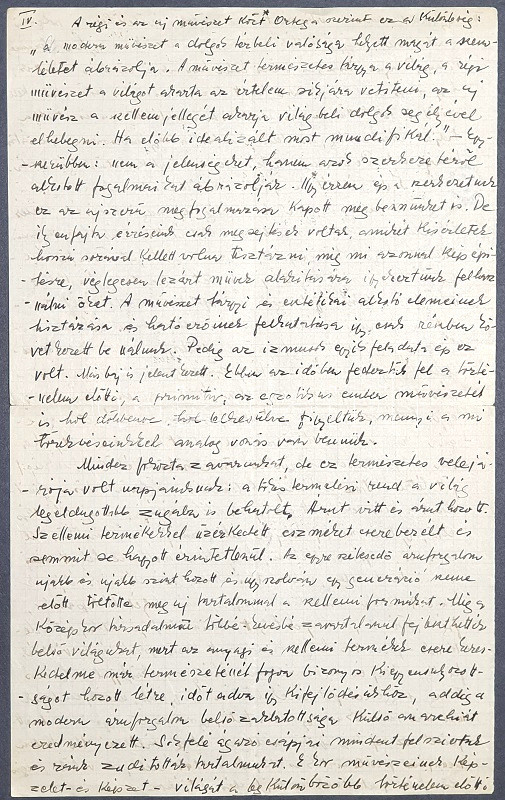 IV.
A régi és az új művészet közt Ortega szerint ez a különbség:
„A modern művészet a dolgok térbeli valósága helyett magát a szem-
léletet ábrázolja. A művészet természetes tárgya a világ, a régi
művészet a világot akarta az értelem síkjára vetíteni, az új
művész a szellem jellegét akarja világbeli dolgok segítségével
elhelyezni. Ha előbb idealizált most mundifikál." – Egy-
szerűbben: nem a jelenségeket, hanem azok szerkezetéről
alkotott fogalmainkat ábrázolják. Így
ez az újszerű megfogalmazás kapott megbecsülést is. De
csak megsejtések voltak amiket kísérletek
hosszú sorával kellett volna tisztázni, míg mi azonnal képépí-
tésre, véglegesen lezárt művek alakítására igyekeztünk felhasz-
nálni őket. A művészet tárgyi és alkotó elemeinek
tisztázása és ható erőinek felkutatása így csak részben kö-
vetkezett be nálunk. Pedig az izmusok egyik feladata ép ez
volt. Más baj is jelentkezett. Ebben az időben fedezték fel a törté-
nelem előtti, a primitív, az ember művészetét
is, hol döbbenve, hol lelkesülve figyeltük, mennyi a mi
törekvéseinkkel analog vonás van bennük.
Mindez fokozta zavarunkat, de ez természetes velejá-
rója volt napjainknak: a termelési rend a világ
legeldugottabb zugába is behatolt. Árut vitt és árut hozott.
Szellemi termékekkel üzérkedett eszméket csereberélt és
semmit se hagyott érintetlenül. Az egyre szélesedő áruforgalom
újabb és újabb színt hozott és úgyszólván egy generáció szeme
előtt töltötte meg új tartalommal a szellemi formákat. Míg a
középkor társadalmai többé-kevésbé zavartalanul fejleszthették
belső világukat, mert az anyagi és szellemi termékek cseré keres-
kedelme már természeténél fogva bizonyos kiegyensúlyozott-
ságot hozott létre, időt adva így kifejlődésükhöz, addig a
modern áruforgalom belső zaklatottsága külső anarchiát
eredményezett. Százfelé ágazó csápjai mindent felszívtak
és ránk zúdították tartalmukat. E kor művészeinek kép-
zelet- és képzet- világát a legkülönbözőbb történelem előtti